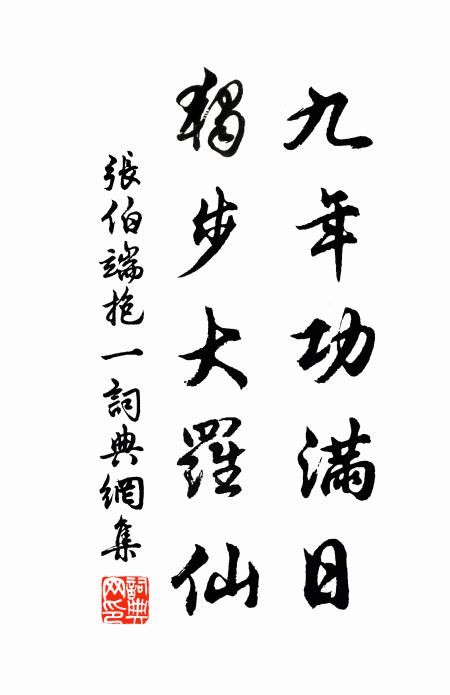 九年功滿日
獨步大羅仙
張伯端抱一詞典網集
詞典網印